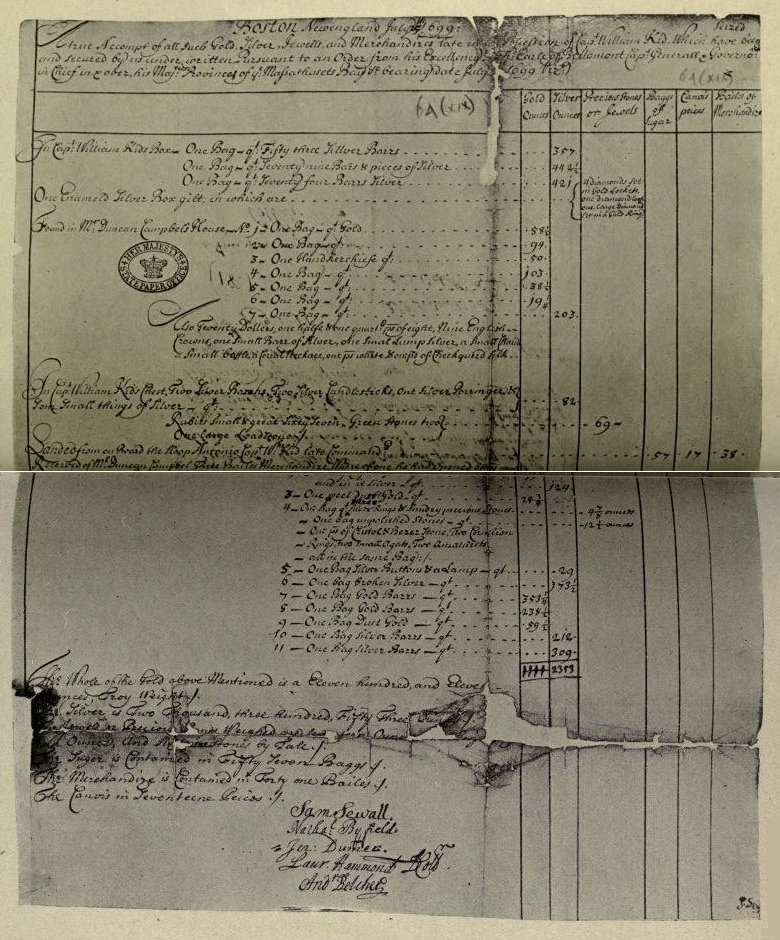 Boston Newengland July 1699:
A true Accompt of all such Gold, Silver, Jewells, and Merchandizes late in possession of Capt. William Kid, Which have been seized
and secured by us under written Pursuant to an Order from his Excellency Earle of Bellomont Capt. Generall & Governor
in Chief in & over, his Majties Provinces of ye Massachusets Bay &c bearing date July 1699 Vizt.
6A (xix)
6A (xix)
Gold Ounces
Silver Ounces
Precious Stones or Jewels
Baggs of Sugar
Canvis peices
Bailes of Merchandize
In Capt. William Kids Box - One Bag - qt. Fifty three Sillver Barrs 357
One Bag - qt. Seventy nine Bars & pieces of Silver 442½
One Bag - qt. Seventy four Barrs Silver 421
One Enameld Silver Box gilt, in which are 4 diamonds set
in Gold Lockets,
one diamond loose
one large Diamond
set in a Gold Ring
Found in Mr. Duncan Campbels House - No. 1 - One Bag - qt. Gold 58½
2 - One Bag - qt. 94
3 - One Handkerchiefe qt. 50
4 - One Bag - qt. 103
5 - One Bag - qt. 38½
6 - One Bag - qt. 19¼
7 - One Bag - qt. 203
HER MAJESTY'S STATE PAPER OFFICE
Also Twenty Dollers, one halfe & one quart. ps. of eight, Nine English
Crowns, one Small Barr of Silver, one Small Lump Silver, a Small Chain
a Small bottle, a Corral Necklace, one ps. white & one ps. of Checquered Silk
In Capt. William Kids Chest, Two Silver Basons, Two Silver Candlesticks, One Silver Porringer &
Some Small things of Silver - qt. 82
Rubies Small & great Sixty Seven - Green Stones two 69
One Large Loadstone
Landed from on Board the Sloop Antonio Capt. Wm. Kid late Command 57 17 38
Received of Mr. Duncan Campbel Three Bailes Merchandize Whereof one he had opened
and in it Silver qt. 124
3 - One peel dust Gold qt 24¾
4 - One Bag qt. Silver Rings & Sundry precious Stones 4⅞ ounces
One bag unpolished Stones - qt 12½ ounces
One ps. of Cristol & Bezer Stone, Two Cornelion
Rings, two Small Agats, Two Amathests
all in the same Bag
5 - One Bag Silver Buttons & a Lamp - qt. 29
6 - One bag broken Silver - qt 173½
7 - One Bag Gold Barrs - qt 353½
8 - One Bag Gold Barrs - qt 238½
9 - One Bag Dust Gold - qt 59½
10 - One Bag Silver Barrs - qt 212
11 - One Bag Silver Barrs - qt 309
1111 2353
The Whole of the Gold above Mentioned is a Eleven hundred, and Eleven
Ounces Troy Weight
The Silver is Two Thousand, three hundred, Fifty Three Ounces
The Jewels or Precious Stones Weighed are
Ounces, And Stones by Tale
The Suger is Contained in Fifty Seven Baggs
The Merchandize is Contained in Forty one Bailes
The Canvis in Seventeene Peices
Sam Sewall.
Nathal. Byfield.
Jer: Dumer.
Laur. Hammond Rcr.
Andr. Belcher